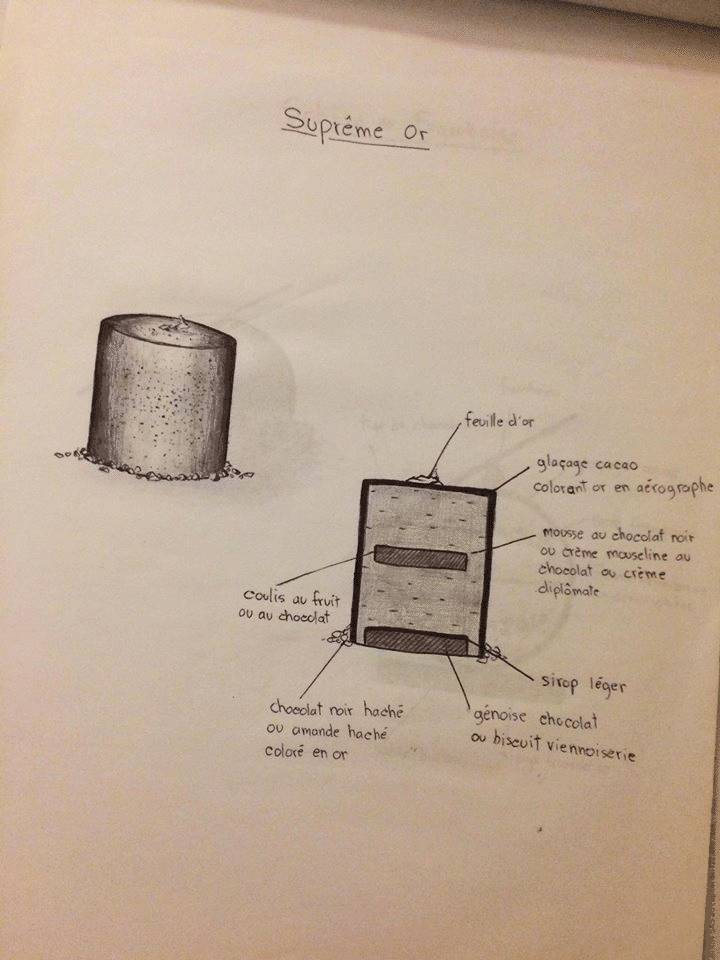 Suprême Or
feuille d'or
glaçage cacao
colorant or en aérographe
mousse au chocolat noir
ou crème mouseline au
chocolat ou crème
diplômate
coulis au fruit
ou au chocolat
sirop léger
chocolat noir haché
ou amande haché
coloré en or
génoise chocolat
ou biscuit viennoiserie